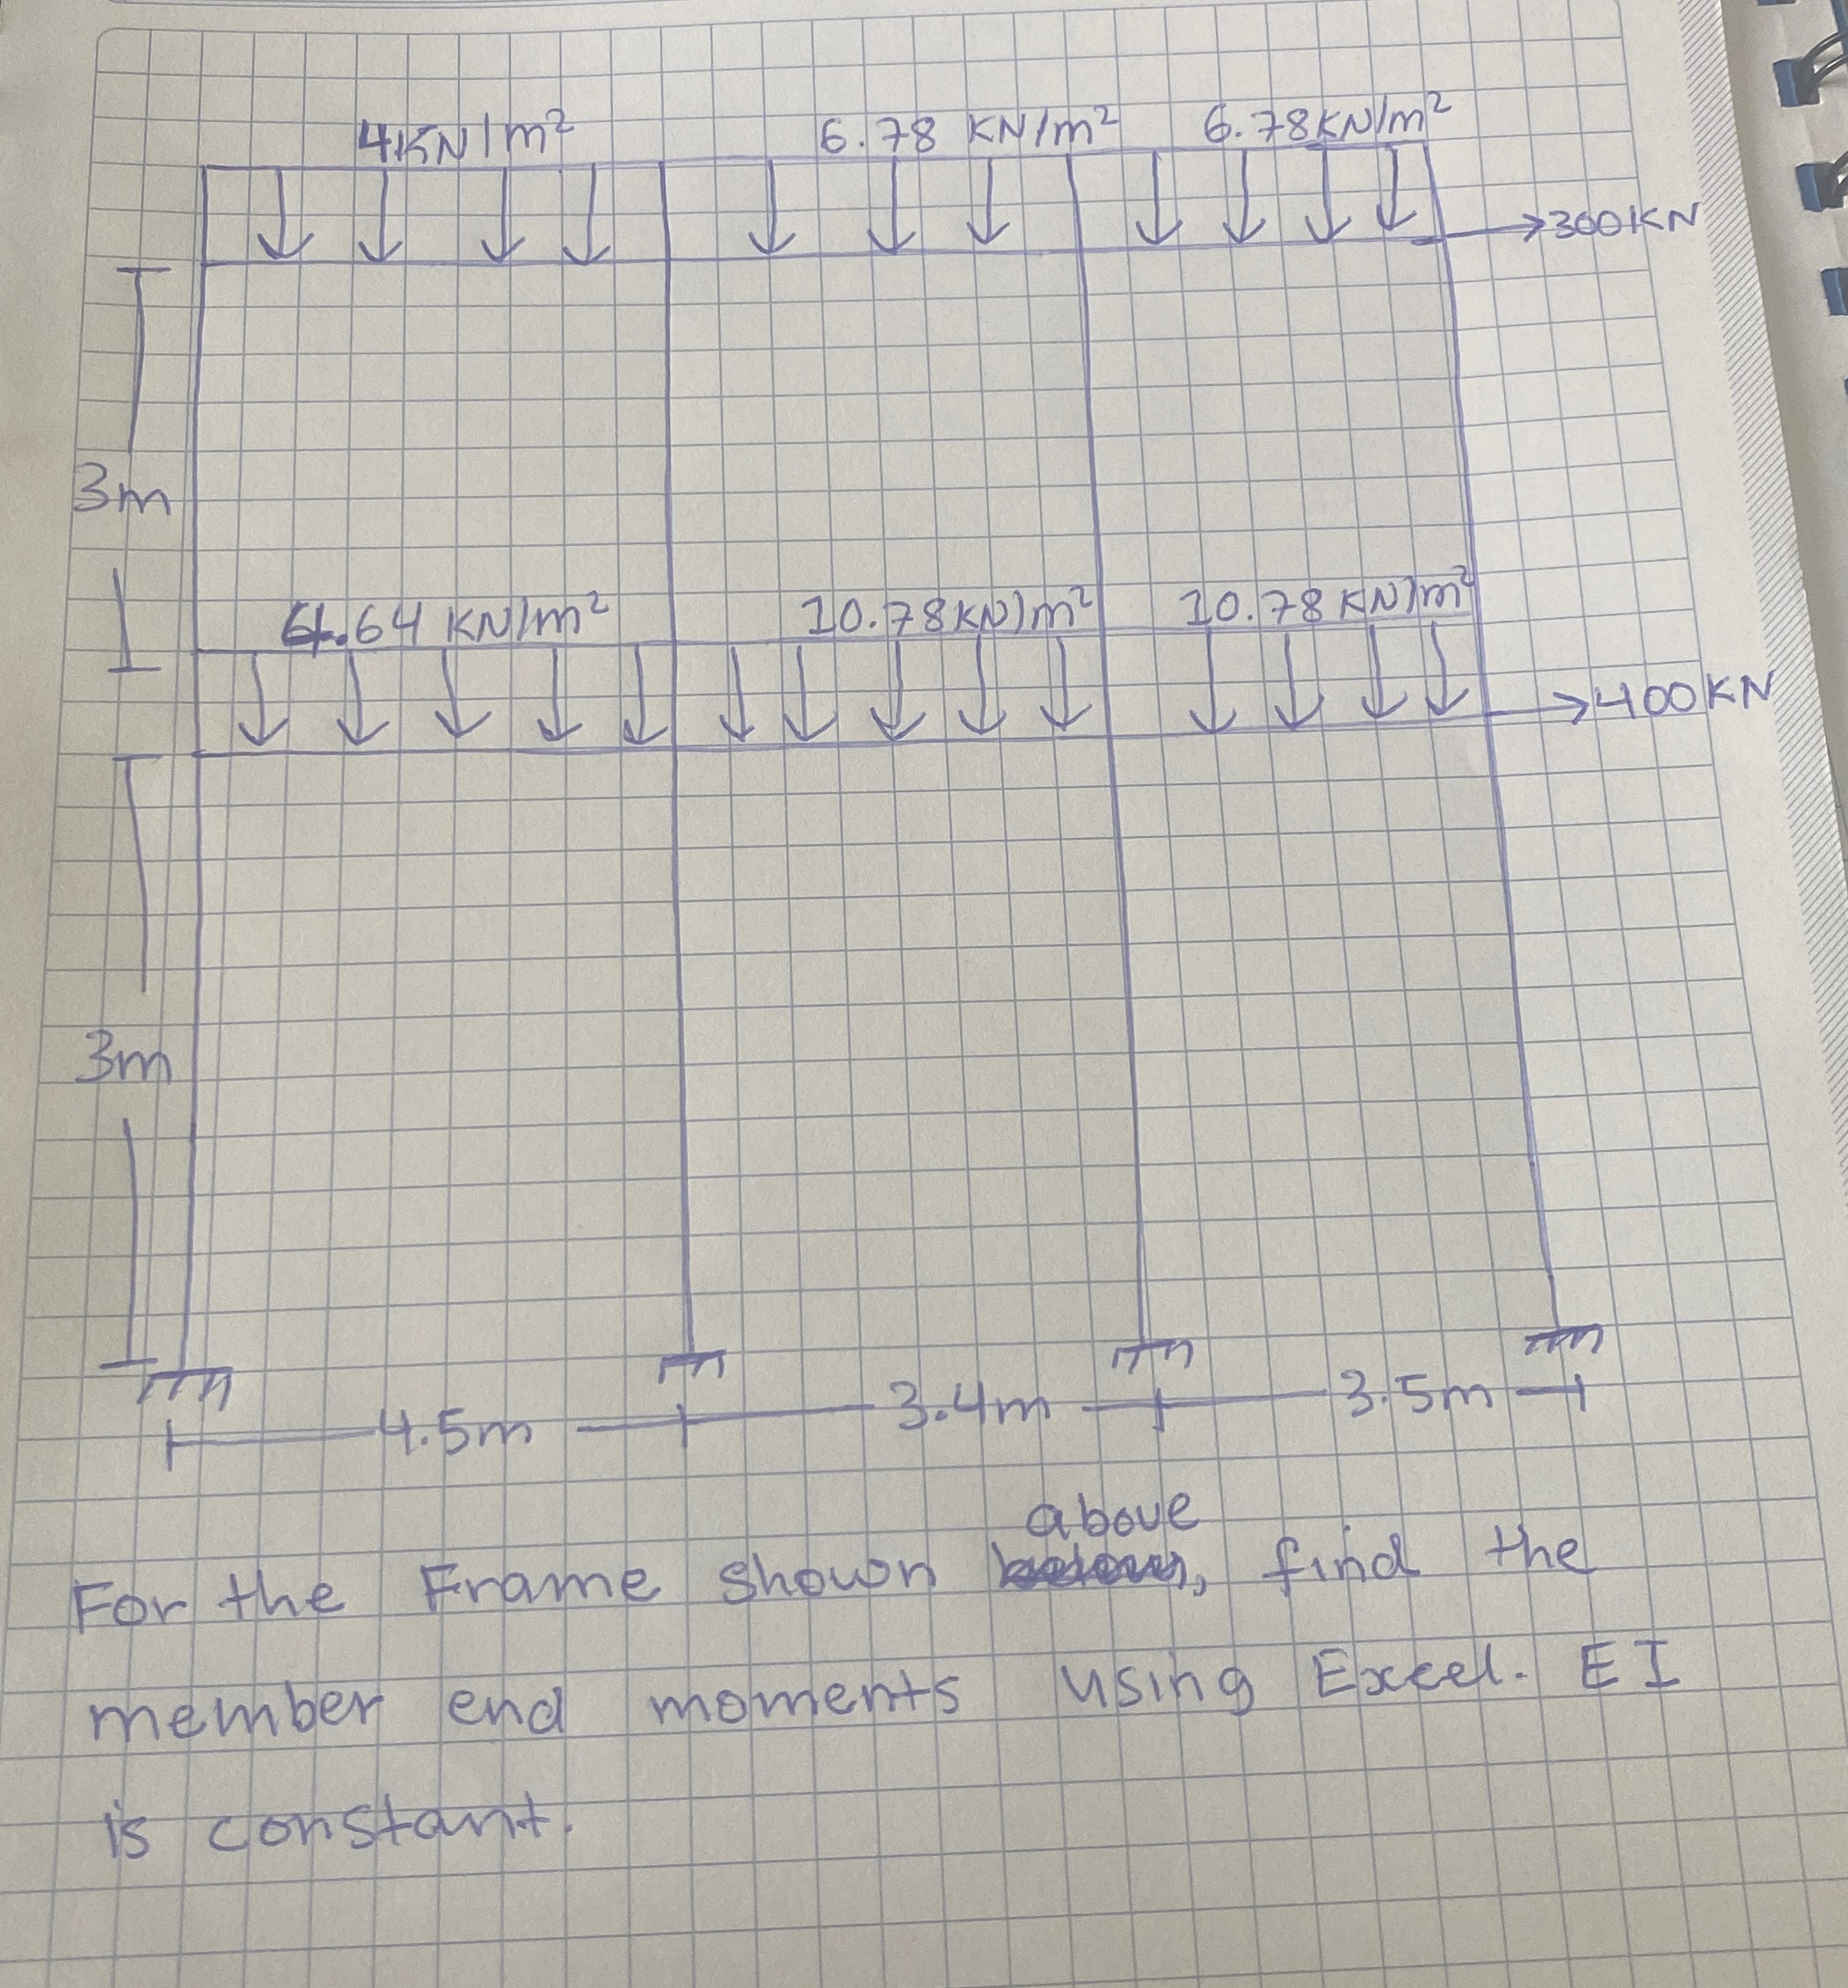 4KN/m² 6.78 KN/m² 6.78KN/m²
300KN
3m
.64 KN/m² 10.78KN/m² 10.78KN/m²
400KN
3m
4.5m 3.4m 3.5m
above
For the Frame shown , find the
member end moments using Excel. EI
is constant.